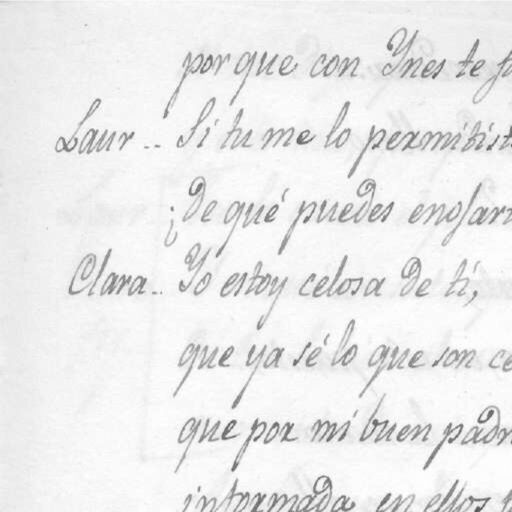 por que con Ynes te
Laur.. Si tu me lo permitist
¿De qué puedes enojar
Clara.. Yo estoy celosa de tí,
que ya sé lo que son ce
que por mi buen padr
informada en ellos